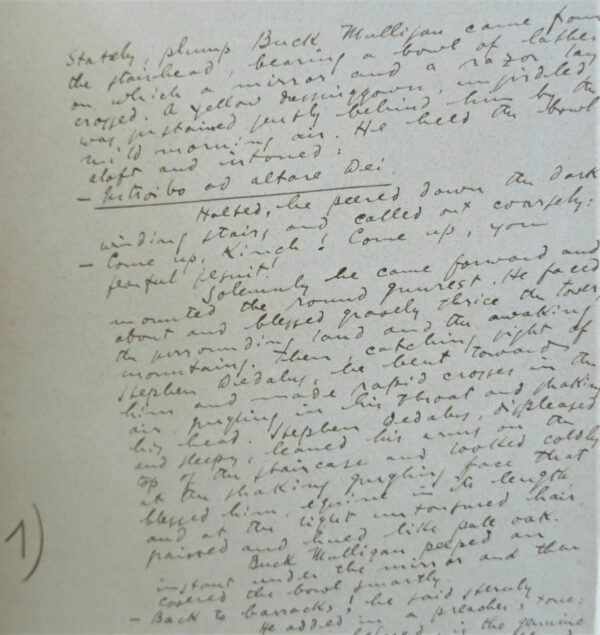 Stately, plump Buck Mulligan came from
the stairhead, bearing a bowl of lather
on which a mirror and a razor lay
crossed. A yellow dressinggown, ungirdled,
was sustained gently behind him by the
mild morning air. He held the bowl
aloft and intoned:
– Introibo ad altare Dei.
Halted, he peered down the dark
winding stairs and called out coarsely:
– Come up, Kinch! Come up, you
fearful jesuit!
Solemnly he came forward and
mounted the round gunrest. He faced
about and blessed gravely thrice the tower,
the surrounding land and the awaking
mountains. Then, catching sight of
Stephen Dedalus, he bent towards
him and made rapid crosses in the
air, gurgling in his throat and shaking
his head. Stephen Dedalus, displeased
and sleepy, leaned his arms on the
top of the staircase and looked coldly
at the shaking gurgling face that
blessed him, equine in its length,
and at the light untonsured hair
grained and hued like pale oak.
Buck Mulligan peeped an
instant under the mirror and then
covered the bowl smartly.
– Back to barracks! he said sternly
He added in a preacher's tone:
is the genuine
1)